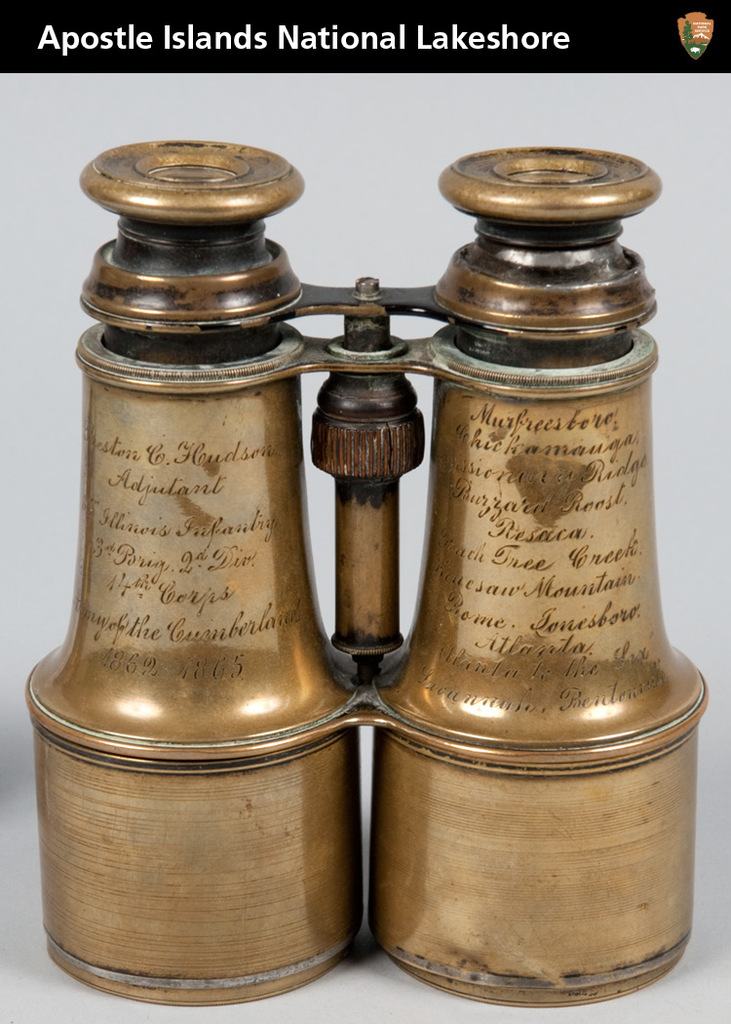 Apostle Islands National Lakeshore
eston C. Hudson
Adjutant
Illinois Infantry
3rd Brig. 2d Div.
14th Corps
my of the Cumberland
1862 1865
Murfreesboro,
Chickamauga,
Ridge
Buzzard Roost,
Resaca.
ach Tree Creek.
nesaw Mountain.
Rome. Jonesboro.
Atlanta.
to the Sea
Savannah. Bentonville